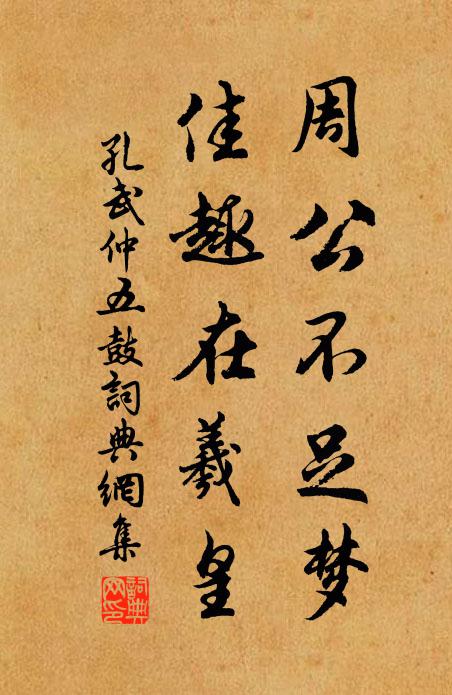 周公不足梦
佳趣在羲皇
孔武仲五鼓詞典網集
詞典网印